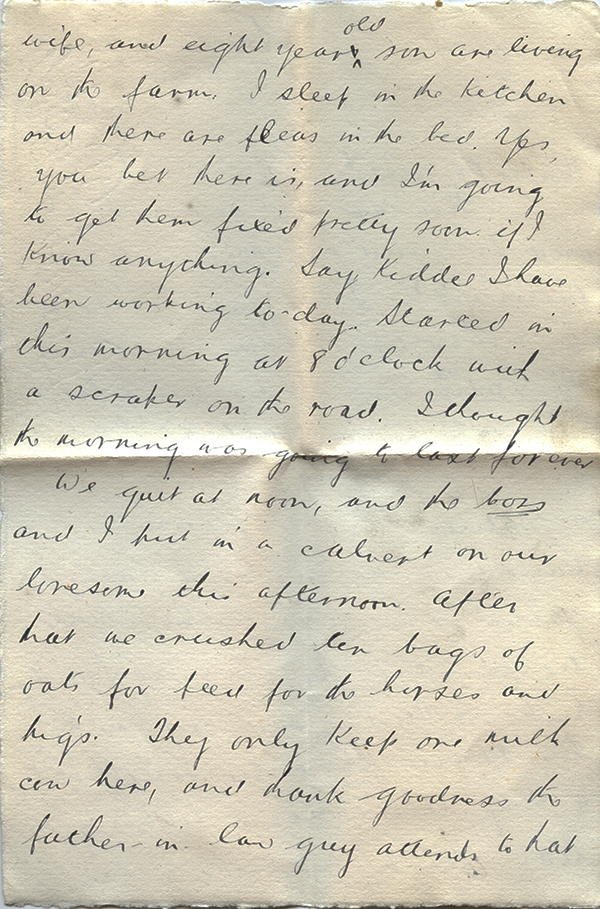 wife, and eight year old son are living
on the farm. I sleep in the kitchen
and there are fleas in the bed. Yes,
you bet there is, and I'm going
to get them fixed pretty soon if I
know anything. Say Kiddo I have
been working to-day. Started in
this morning at 8 o'clock with
a scraper on the road. I thought
the morning was going to last forever
We quit at noon, and the boss
and I put in a calvert on our
lonesome this afternoon. After
that we crushed ten bags of
oats for feed for the horses and
pigs. They only keep one milk
cow here, and thank goodness the
father-in-law guy attends to that